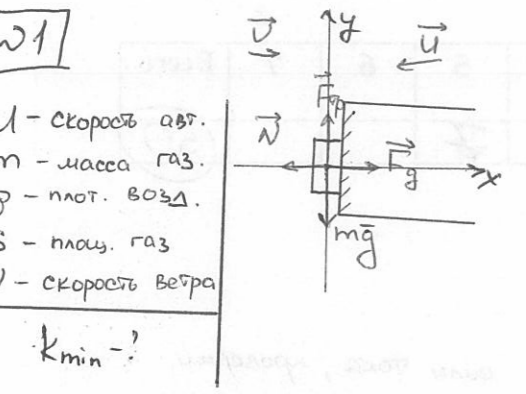 №1
U - скорость авт.
m - масса газ.
ρ - плот. возд.
S - площ. газ
V - скорость ветра
k min - ?
V
y
U
Fтр
N
Fg
x
mg